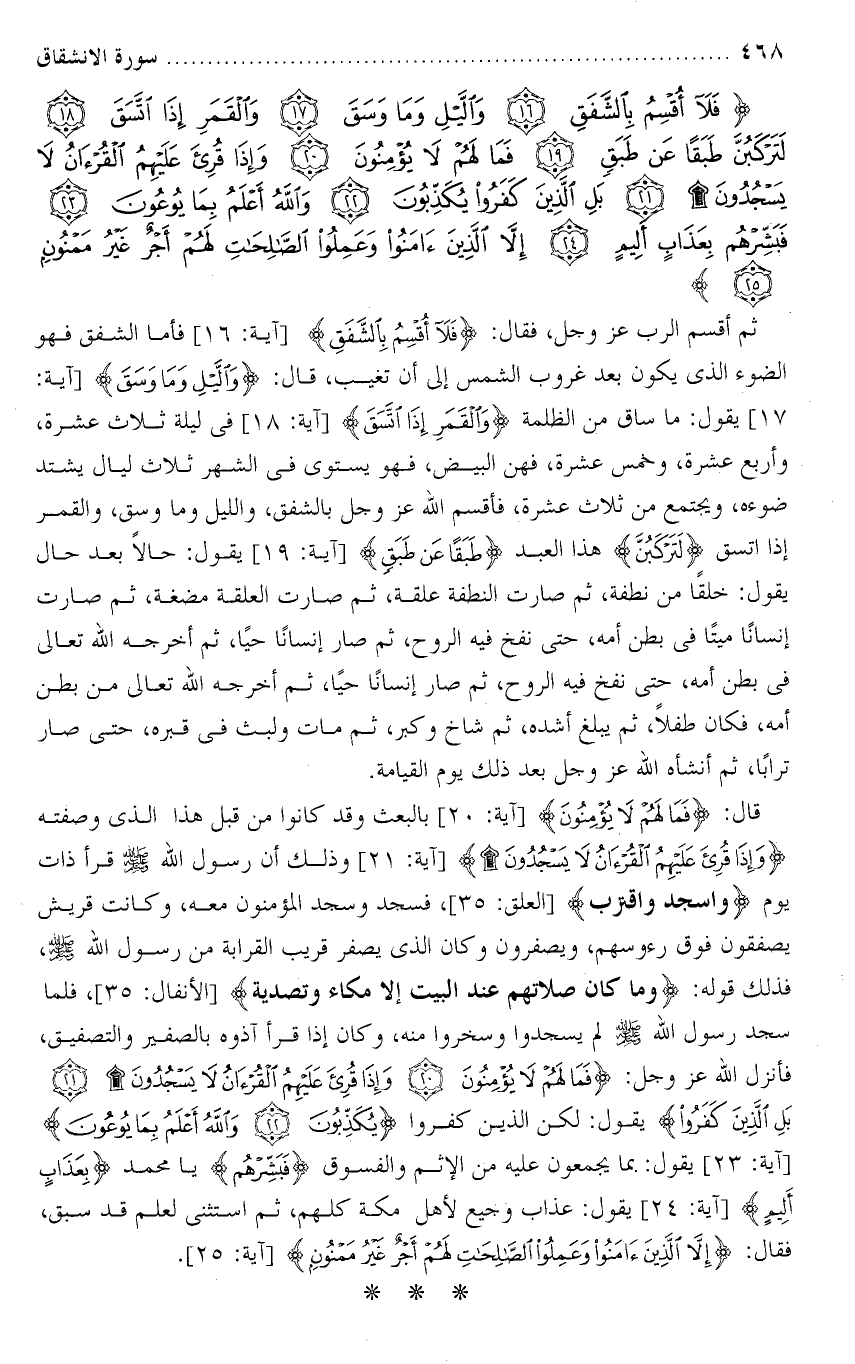 ٤٦٨ ........................................................................ سورة الانشقاق
﴿ فَلَآ أُقْسِمُ بِٱلشَّفَقِ ١٦ وَٱلَّيْلِ وَمَا وَسَقَ ١٧ وَٱلْقَمَرِ إِذَا ٱتَّسَقَ ١٨
لَتَرْكَبُنَّ طَبَقًا عَن طَبَقٍ ١٩ فَمَا لَهُمْ لَا يُؤْمِنُونَ ٢٠ وَإِذَا قُرِئَ عَلَيْهِمُ ٱلْقُرْءَانُ لَا
يَسْجُدُونَ ۩ ٢١ بَلِ ٱلَّذِينَ كَفَرُوا۟ يُكَذِّبُونَ ٢٢ وَٱللَّهُ أَعْلَمُ بِمَا يُوعُونَ ٢٣
فَبَشِّرْهُم بِعَذَابٍ أَلِيمٍ ٢٤ إِلَّا ٱلَّذِينَ ءَامَنُوا۟ وَعَمِلُوا۟ ٱلصَّٰلِحَٰتِ لَهُمْ أَجْرٌ غَيْرُ مَمْنُونٍ
٢٥ ﴾
ثم أقسم الرب عز وجل، فقال: ﴿فَلَآ أُقْسِمُ بِٱلشَّفَقِ﴾ [آية: ١٦] فأما الشفق فهو
الضوء الذى يكون بعد غروب الشمس إلى أن تغيب، قال: ﴿وَٱلَّيْلِ وَمَا وَسَقَ﴾ [آية:
١٧] يقول: ما ساق من الظلمة ﴿وَٱلْقَمَرِ إِذَا ٱتَّسَقَ﴾ [آية: ١٨] فى ليلة ثلاث عشرة،
وأربع عشرة، وخمس عشرة، فهن البيض، فهو يستوى فى الشهر ثلاث ليال يشتد
ضوءه، ويجتمع من ثلاث عشرة، فأقسم الله عز وجل بالشفق، والليل وما وسق، والقمر
إذا اتسق ﴿لَتَرْكَبُنَّ﴾ هذا العبد ﴿طَبَقًا عَن طَبَقٍ﴾ [آية: ١٩] يقول: حالاً بعد حال
يقول: خلقًا من نطفة، ثم صارت النطفة علقة، ثم صارت العلقة مضغة، ثم صارت
إنسانًا ميتًا فى بطن أمه، حتى نفخ فيه الروح، ثم صار إنسانًا حيًا، ثم أخرجه الله تعالى
فى بطن أمه، حتى نفخ فيه الروح، ثم صار إنسانًا حيًا، ثم أخرجه الله تعالى من بطن
أمه، فكان طفلاً، ثم يبلغ أشده، ثم شاخ وكبر، ثم مات ولبث فى قبره، حتى صار
ترابًا، ثم أنشأه الله عز وجل بعد ذلك يوم القيامة.
قال: ﴿فَمَا لَهُمْ لَا يُؤْمِنُونَ﴾ [آية: ٢٠] بالبعث وقد كانوا من قبل هذا الذى وصفته
﴿وَإِذَا قُرِئَ عَلَيْهِمُ ٱلْقُرْءَانُ لَا يَسْجُدُونَ ۩﴾ [آية: ٢١] وذلك أن رسول الله ﷺ قرأ ذات
يوم ﴿واسجد واقترب﴾ [العلق: ٣٥]، فسجد وسجد المؤمنون معه، وكانت قريش
يصفقون فوق رءوسهم، ويصفرون وكان الذى يصفر قريب القرابة من رسول الله ﷺ،
فذلك قوله: ﴿وما كان صلاتهم عند البيت إلا مكاء وتصدية﴾ [الأنفال: ٣٥]، فلما
سجد رسول الله ﷺ لم يسجدوا وسخروا منه، وكان إذا قرأ آذوه بالصفير والتصفيق،
فأنزل الله عز وجل: ﴿فَمَا لَهُمْ لَا يُؤْمِنُونَ ٢٠ وَإِذَا قُرِئَ عَلَيْهِمُ ٱلْقُرْءَانُ لَا يَسْجُدُونَ ۩ ٢١
بَلِ ٱلَّذِينَ كَفَرُوا۟﴾ يقول: لكن الذين كفروا ﴿يُكَذِّبُونَ ٢٢ وَٱللَّهُ أَعْلَمُ بِمَا يُوعُونَ﴾
[آية: ٢٣] يقول: بما يجمعون عليه من الإثم والفسوق ﴿فَبَشِّرْهُم﴾ يا محمد ﴿بِعَذَابٍ
أَلِيمٍ﴾ [آية: ٢٤] يقول: عذاب وجيع لأهل مكة كلهم، ثم استثنى لعلم قد سبق،
فقال: ﴿إِلَّا ٱلَّذِينَ ءَامَنُوا۟ وَعَمِلُوا۟ ٱلصَّٰلِحَٰتِ لَهُمْ أَجْرٌ غَيْرُ مَمْنُونٍ﴾ [آية: ٢٥].
* * *